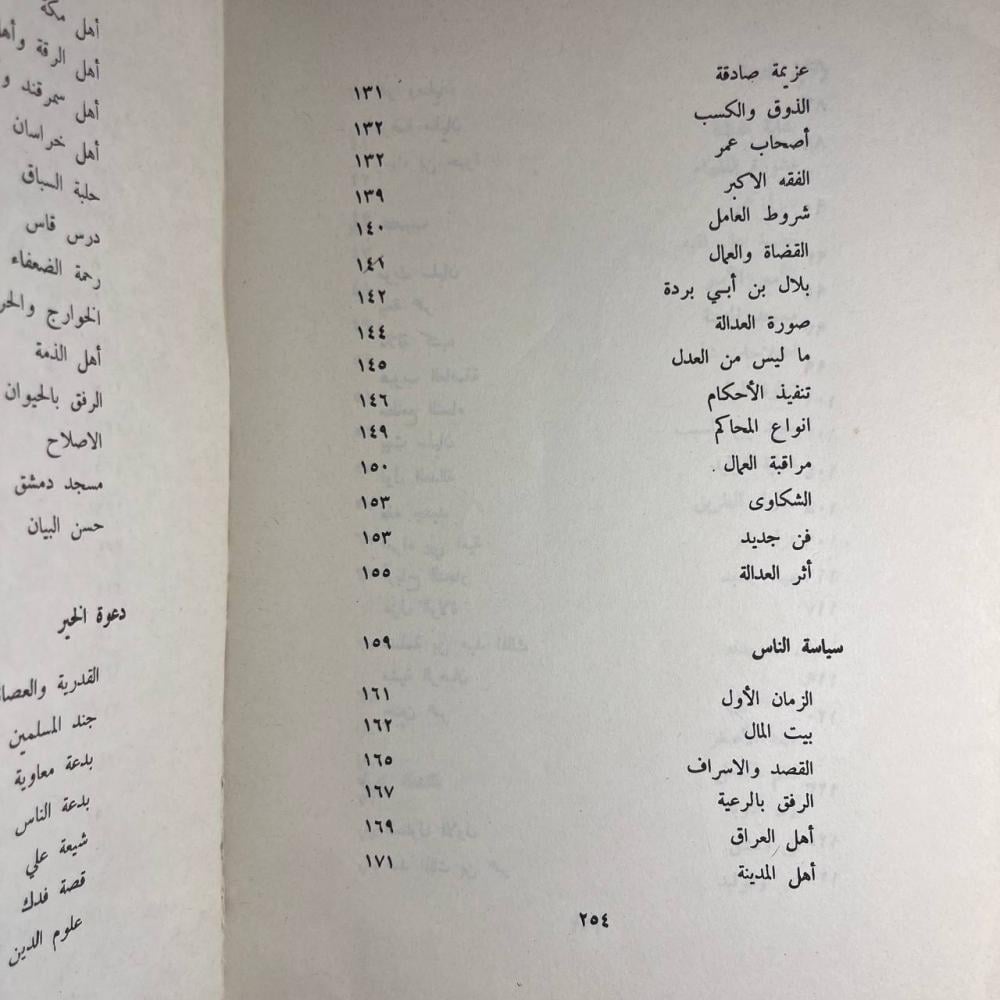 عزيمة صادقة ١٣١
الذوق والكسب ١٣٢
أصحاب عمر ١٣٢
الفقه الاكبر ١٣٩
شروط العامل ١٤٠
القضاة والعمال ١٤١
بلال بن أبي بردة ١٤٢
صورة العدالة ١٤٤
ما ليس من العدل ١٤٥
تنفيذ الأحكام ١٤٦
انواع المحاكم ١٤٩
مراقبة العمال . ١٥٠
الشكاوى ١٥٣
فن جديد ١٥٣
أثر العدالة ١٥٥
سياسة الناس ١٥٩
الزمان الأول ١٦١
بيت المال ١٦٢
القصد والاسراف ١٦٥
الرفق بالرعية ١٦٧
أهل العراق ١٦٩
أهل المدينة ١٧١
٢٥٤
أهل مكة
أهل الرقة
أهل سمرقند
أهل خراسان
حلبة السباق
درس قاس
رحمة الضعفاء
الخوارج
أهل الذمة
الرفق بالحيوان
الاصلاح
مسجد دمشق
حسن البيان
دعوة الخير
القدرية
جند المسلمين
بدعة معاوية
بدعة الناس
شيعة علي
قصة فدك
علوم الدين